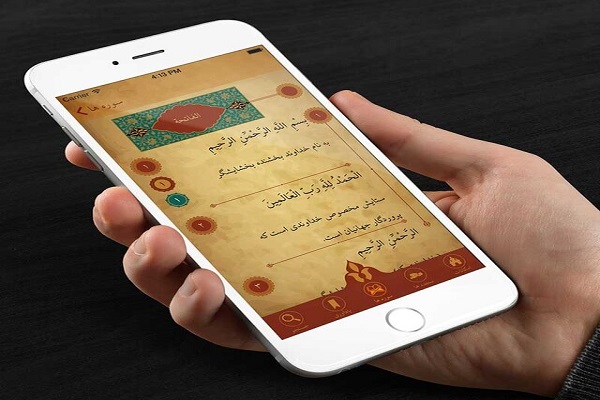 Carrier 4:13 PM
سوره ها
الفاتحة
بِسْمِ اللَّهِ الرَّحْمَٰنِ الرَّحِيمِ
به نام خداوند بخشنده بخشایشگر
الْحَمْدُ لِلَّهِ رَبِّ الْعَالَمِينَ
ستایش مخصوص خداوندی است که
پروردگار جهانیان است.
الرَّحْمَٰنِ الرَّحِيمِ